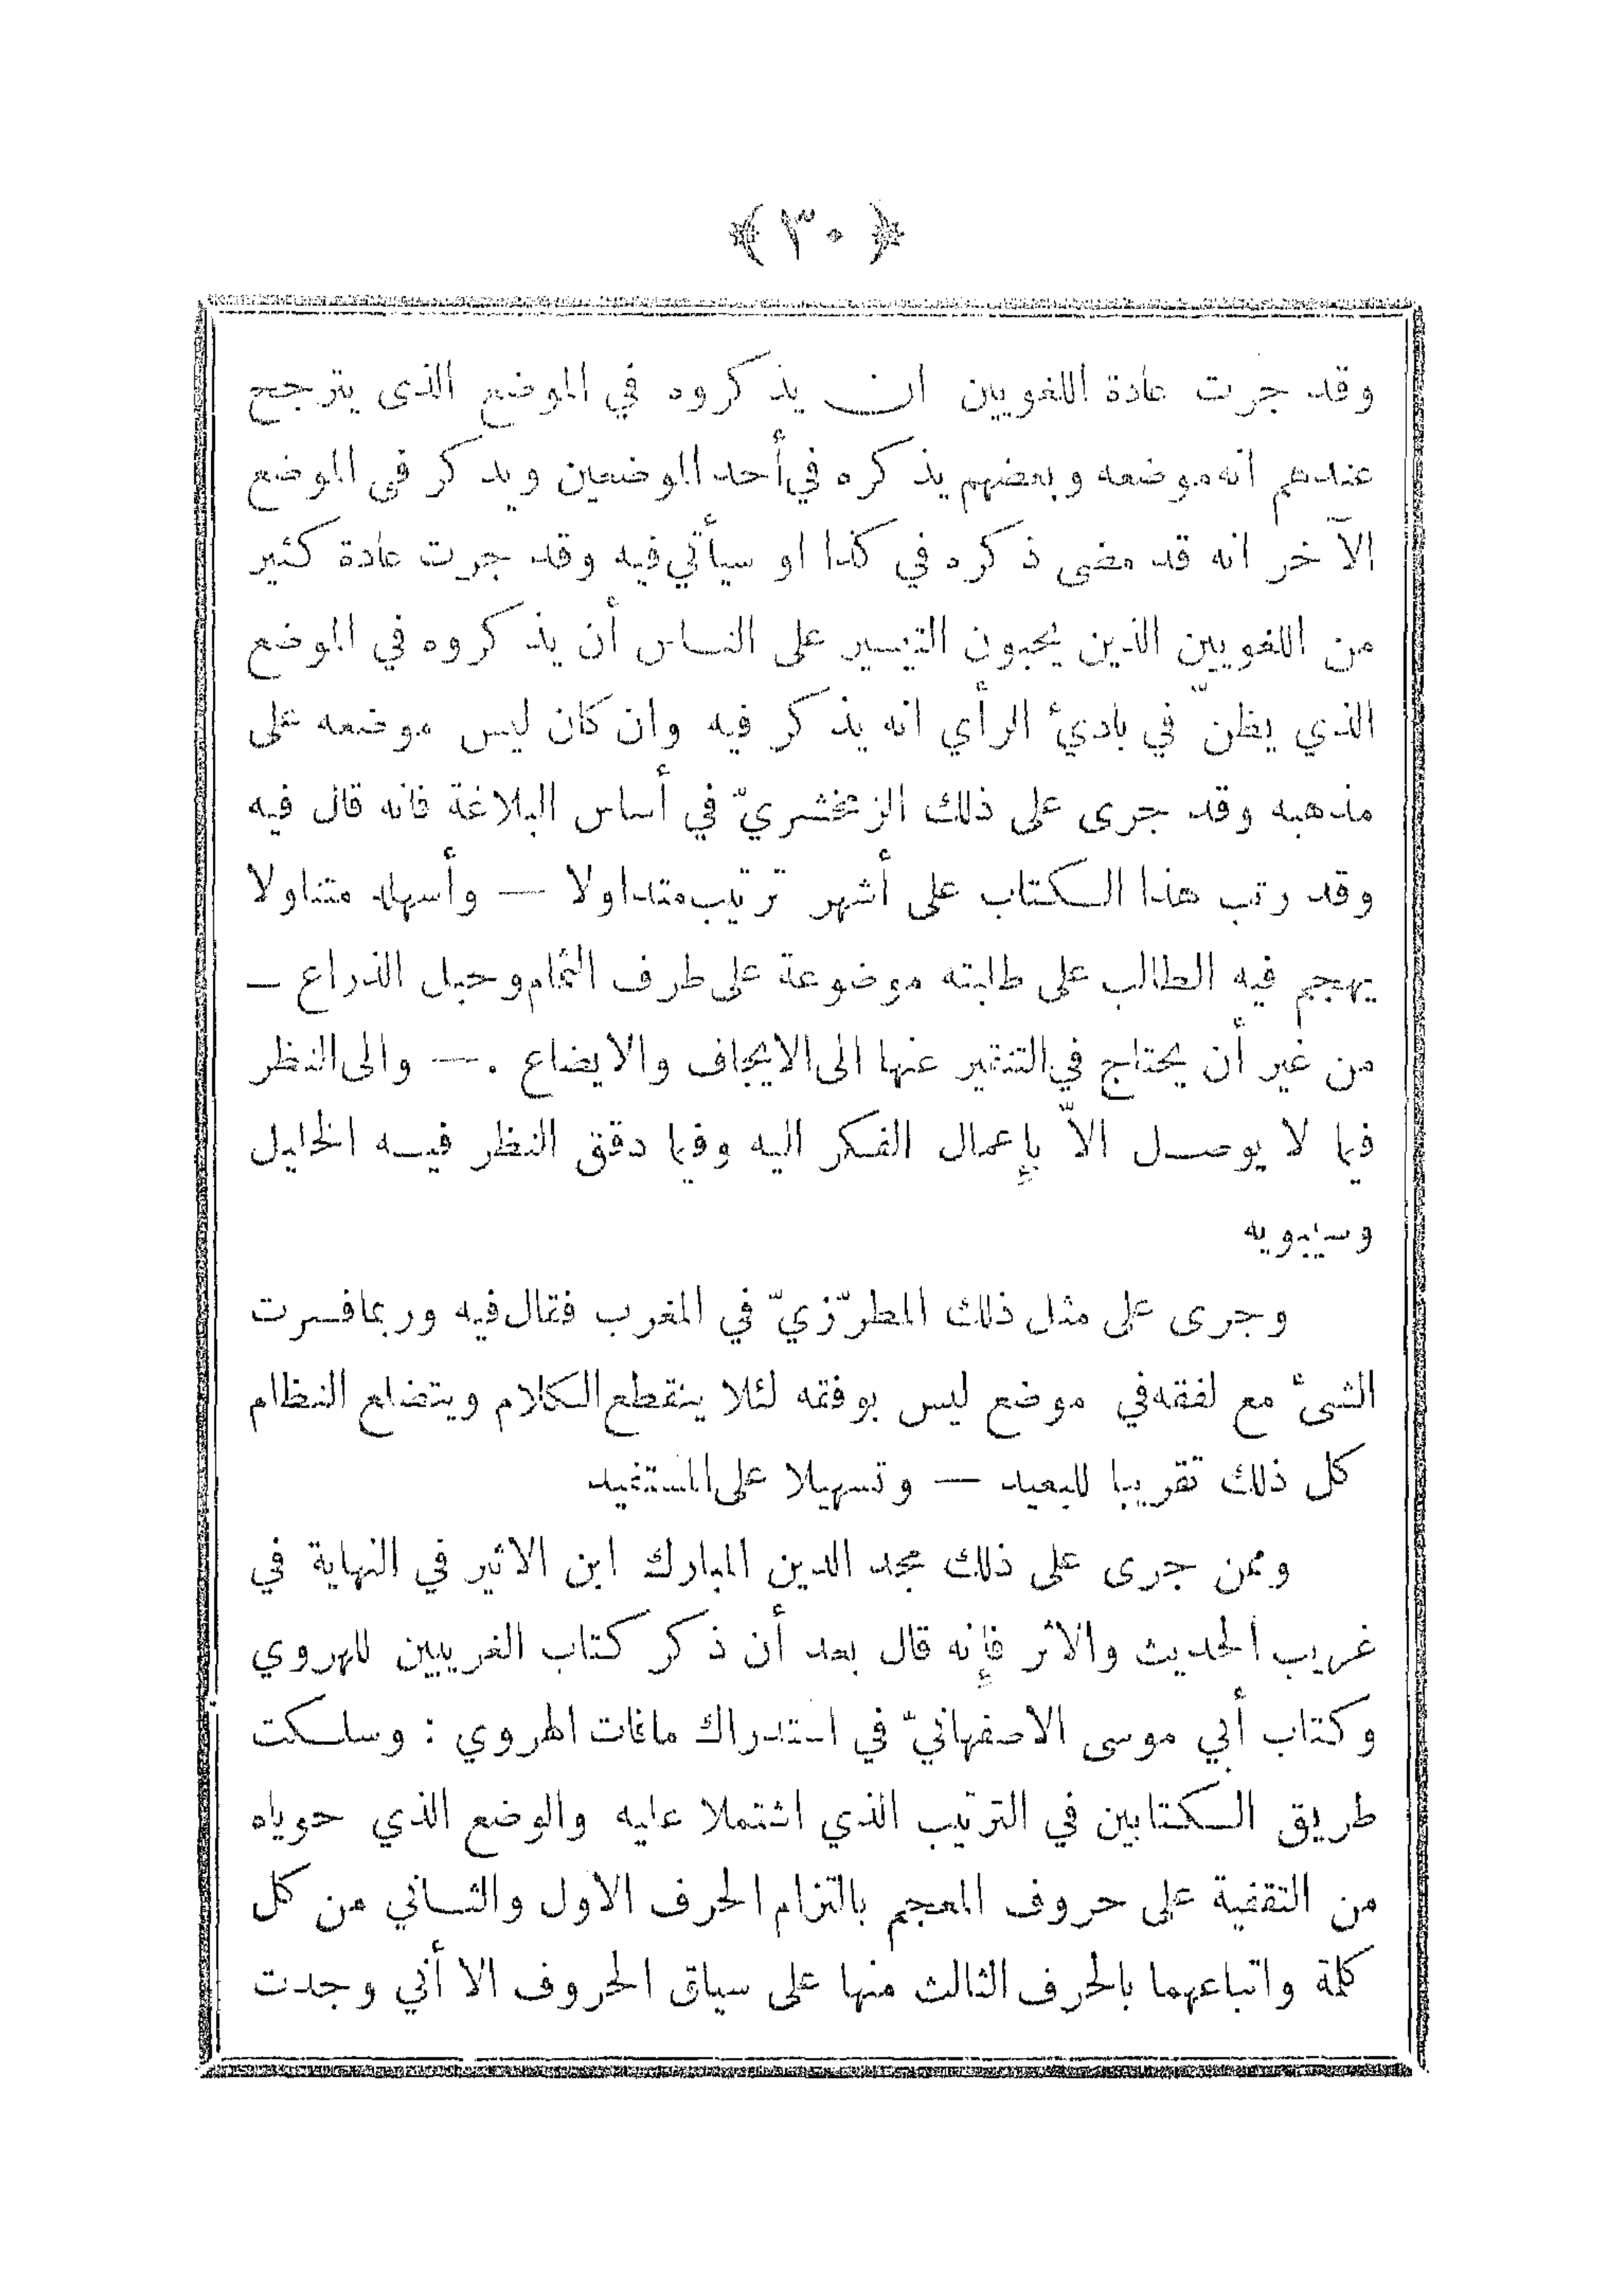 ﴿ ٣٠ ﴾
وقد جرت عادة اللغويين ان يذكروه في الموضع الذى يترجح
عندهم انه موضعه وبعضهم يذكره في أحد الموضعين ويذكر فى الموضع
الآخر انه قد مضى ذكره في كذا او سيأتي فيه وقد جرت عادة كثير
من اللغويين الذين يحبون التيسير على الناس أن يذكروه في الموضع
الذي يظنّ في بادئ الرأي انه يذكر فيه وان كان ليس موضعه على
مذهبه وقد جرى على ذلك الزمخشريّ في أساس البلاغة فانه قال فيه
وقد رتب هذا الكتاب على أشهر ترتيب متداولا — وأسهله متناولا
يهجم فيه الطالب على طلبته موضوعة على طرف الثمام وحبل الذراع —
من غير أن يحتاج في التنقير عنها الى الايجاف والايضاع . — والى النظر
فيما لا يوصل الاّ بإعمال الفكر اليه وفيما دقق النظر فيه الخليل
وسيبويه
وجرى على مثل ذلك المطرّزيّ في المغرب فقال فيه وربما فسرت
الشئ مع لفقه في موضع ليس بوفقه لئلا ينقطع الكلام ويتضلع النظام
كل ذلك تقريبا للبعيد — وتسهيلا على المستفيد
وممن جرى على ذلك مجد الدين المبارك ابن الاثير في النهاية في
غريب الحديث والاثر فإنه قال بعد أن ذكر كتاب الغريبين للهروي
وكتاب أبي موسى الاصفهانيّ في استدراك مافات الهروي : وسلكت
طريق الكتابين في الترتيب الذي اشتملا عليه والوضع الذي حوياه
من التقفية على حروف المعجم بالتزام الحرف الاول والثاني من كل
كلمة واتباعهما بالحرف الثالث منها على سياق الحروف الا أني وجدت